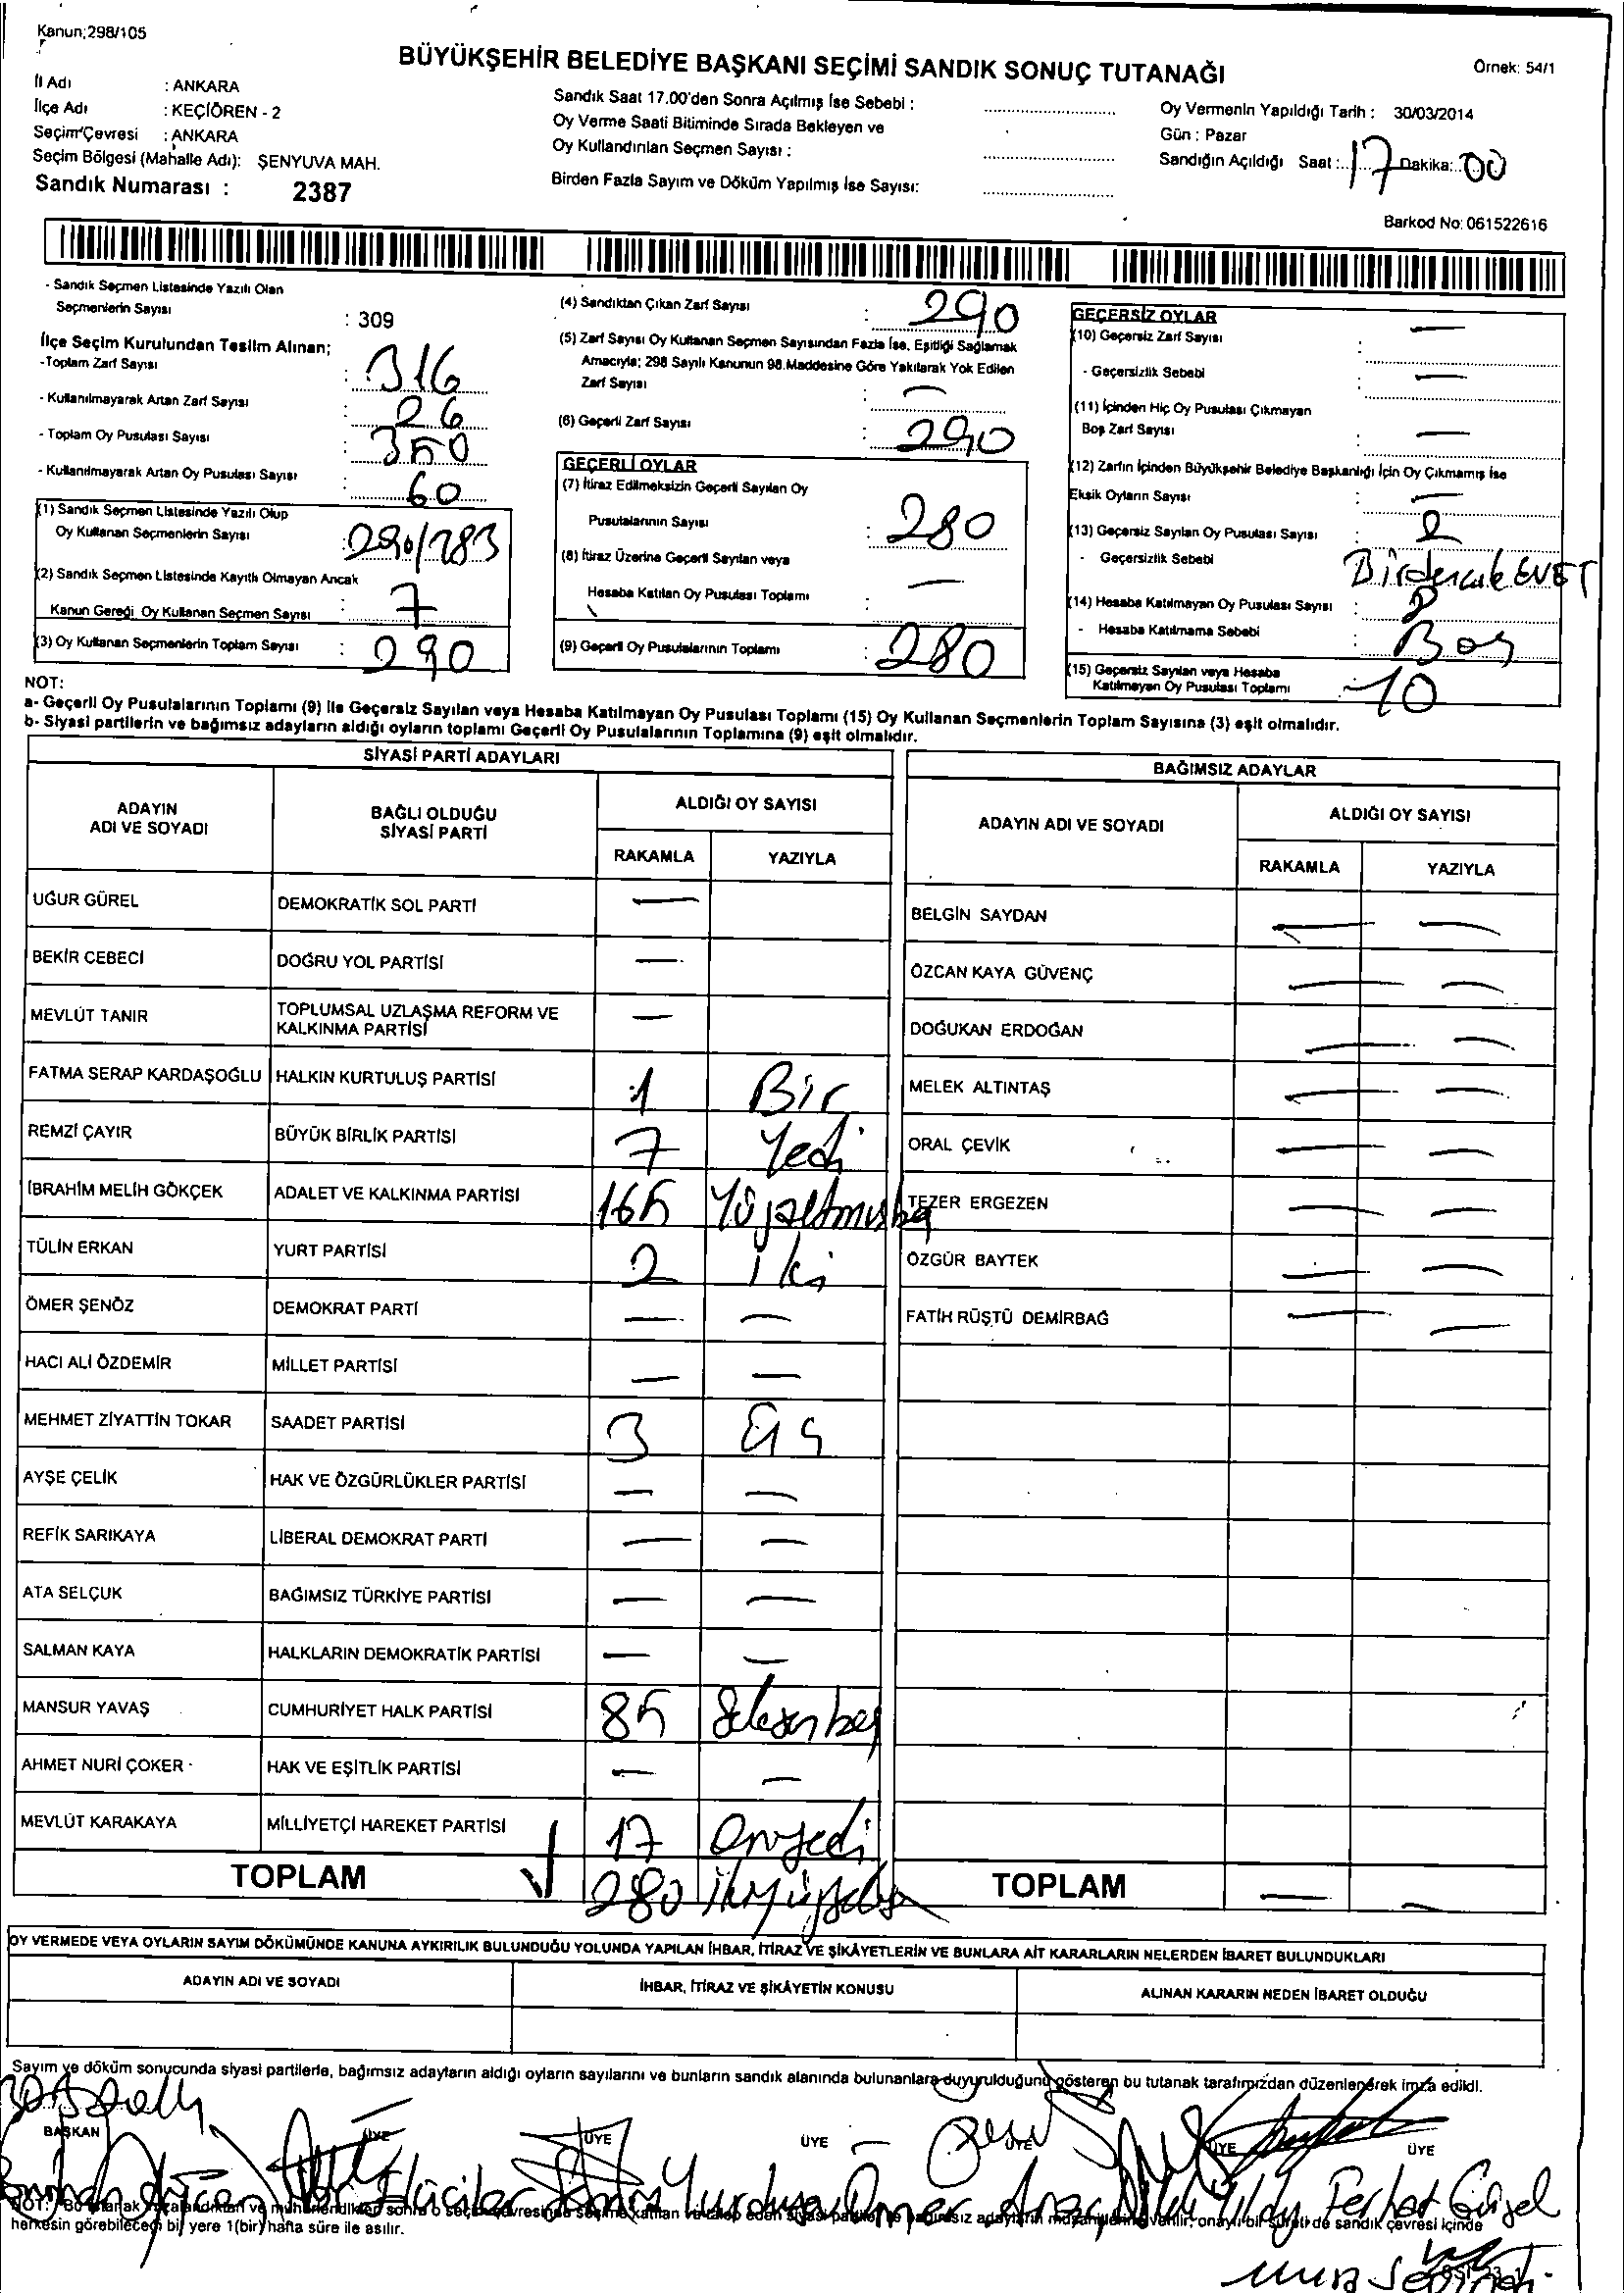 Kanun;298/105
BÜYÜKŞEHİR BELEDİYE BAŞKANI SEÇİMİ SANDIK SONUÇ TUTANAĞI
Örnek: 54/1
İl Adı : ANKARA
İlçe Adı : KEÇİÖREN - 2
Seçim Çevresi : ANKARA
Seçim Bölgesi (Mahalle Adı): ŞENYUVA MAH.
Sandık Numarası : 2387
Sandık Saat 17.00'den Sonra Açılmış İse Sebebi :
Oy Verme Saati Bitiminde Sırada Bekleyen ve
Oy Kullandırılan Seçmen Sayısı :
Birden Fazla Sayım ve Döküm Yapılmış İse Sayısı:
Oy Vermenin Yapıldığı Tarih : 30/03/2014
Gün : Pazar
Sandığın Açıldığı Saat : 17 Dakika: 00
Barkod No: 061522616
- Sandık Seçmen Listesinde Yazılı Olan
Seçmenlerin Sayısı : 309
İlçe Seçim Kurulundan Teslim Alınan;
-Toplam Zarf Sayısı : 316
- Kullanılmayarak Artan Zarf Sayısı : 26
- Toplam Oy Pusulası Sayısı : 350
- Kullanılmayarak Artan Oy Pusulası Sayısı : 60
(1) Sandık Seçmen Listesinde Yazılı Olup
Oy Kullanan Seçmenlerin Sayısı : 290/283
(2) Sandık Seçmen Listesinde Kayıtlı Olmayan Ancak
Kanun Gereği Oy Kullanan Seçmen Sayısı : 7
(3) Oy Kullanan Seçmenlerin Toplam Sayısı : 290
(4) Sandıktan Çıkan Zarf Sayısı : 290
(5) Zarf Sayısı Oy Kullanan Seçmen Sayısından Fazla İse, Eşitliği Sağlamak
Amacıyla; 298 Sayılı Kanunun 98.Maddesine Göre Yakılarak Yok Edilen
Zarf Sayısı : —
(6) Geçerli Zarf Sayısı : 290
GEÇERLİ OYLAR
(7) İtiraz Edilmeksizin Geçerli Sayılan Oy
Pusulalarının Sayısı : 280
(8) İtiraz Üzerine Geçerli Sayılan veya
Hesaba Katılan Oy Pusulası Toplamı : —
(9) Geçerli Oy Pusulalarının Toplamı : 280
GEÇERSİZ OYLAR
(10) Geçersiz Zarf Sayısı : —
- Geçersizlik Sebebi : —
(11) İçinden Hiç Oy Pusulası Çıkmayan
Boş Zarf Sayısı : —
(12) Zarfın İçinden Büyükşehir Belediye Başkanlığı İçin Oy Çıkmamış İse
Eksik Oyların Sayısı : —
(13) Geçersiz Sayılan Oy Pusulası Sayısı : 2
- Geçersizlik Sebebi : EVET
(14) Hesaba Katılmayan Oy Pusulası Sayısı : 8
- Hesaba Katılmama Sebebi : Boş
(15) Geçersiz Sayılan veya Hesaba
Katılmayan Oy Pusulası Toplamı : 10
NOT:
a- Geçerli Oy Pusulalarının Toplamı (9) ile Geçersiz Sayılan veya Hesaba Katılmayan Oy Pusulası Toplamı (15) Oy Kullanan Seçmenlerin Toplam Sayısına (3) eşit olmalıdır.
b- Siyasi partilerin ve bağımsız adayların aldığı oyların toplamı Geçerli Oy Pusulalarının Toplamına (9) eşit olmalıdır.
SİYASİ PARTİ ADAYLARI
ADAYIN ADI VE SOYADI BAĞLI OLDUĞU SİYASİ PARTİ ALDIĞI OY SAYISI
RAKAMLA YAZIYLA
UĞUR GÜREL DEMOKRATİK SOL PARTİ —
BEKİR CEBECİ DOĞRU YOL PARTİSİ —
MEVLÜT TANIR TOPLUMSAL UZLAŞMA REFORM VE KALKINMA PARTİSİ —
FATMA SERAP KARDAŞOĞLU HALKIN KURTULUŞ PARTİSİ 1 Bir
REMZİ ÇAYIR BÜYÜK BİRLİK PARTİSİ 7 Yedi
İBRAHİM MELİH GÖKÇEK ADALET VE KALKINMA PARTİSİ 165 Yüzaltmışbeş
TÜLİN ERKAN YURT PARTİSİ 2 iki
ÖMER ŞENÖZ DEMOKRAT PARTİ — —
HACI ALİ ÖZDEMİR MİLLET PARTİSİ — —
MEHMET ZİYATTİN TOKAR SAADET PARTİSİ 3 Üç
AYŞE ÇELİK HAK VE ÖZGÜRLÜKLER PARTİSİ — —
REFİK SARIKAYA LİBERAL DEMOKRAT PARTİ — —
ATA SELÇUK BAĞIMSIZ TÜRKİYE PARTİSİ — —
SALMAN KAYA HALKLARIN DEMOKRATİK PARTİSİ — —
MANSUR YAVAŞ CUMHURİYET HALK PARTİSİ 85 Seksenbeş
AHMET NURİ ÇOKER HAK VE EŞİTLİK PARTİSİ — —
MEVLÜT KARAKAYA MİLLİYETÇİ HAREKET PARTİSİ 17 Onyedi
TOPLAM 280 ikiyüzseksen
BAĞIMSIZ ADAYLAR
ADAYIN ADI VE SOYADI ALDIĞI OY SAYISI
RAKAMLA YAZIYLA
BELGİN SAYDAN — —
ÖZCAN KAYA GÜVENÇ — —
DOĞUKAN ERDOĞAN — —
MELEK ALTINTAŞ — —
ORAL ÇEVİK — —
TEZER ERGEZEN — —
ÖZGÜR BAYTEK — —
FATİH RÜŞTÜ DEMİRBAĞ — —
TOPLAM — —
OY VERMEDE VEYA OYLARIN SAYIM DÖKÜMÜNDE KANUNA AYKIRILIK BULUNDUĞU YOLUNDA YAPILAN İHBAR, İTİRAZ VE ŞİKÂYETLERİN VE BUNLARA AİT KARARLARIN NELERDEN İBARET BULUNDUKLARI
ADAYIN ADI VE SOYADI İHBAR, İTİRAZ VE ŞİKÂYETİN KONUSU ALINAN KARARIN NEDEN İBARET OLDUĞU
Sayım ve döküm sonucunda siyasi partilerle, bağımsız adayların aldığı oyların sayılarını ve bunların sandık alanında bulunanlara duyurulduğunu gösteren bu tutanak tarafımızdan düzenlenerek imza edildi.
BAŞKAN ÜYE ÜYE ÜYE ÜYE ÜYE ÜYE
Ömer Ferhat Güzel
NOT: Bu tutanak ve mühürlendikten sonra o seçim çevresinde seçime katılan ve talep eden siyasi bağımsız adayların müşahitlerine verilir, onaylı bir sureti de sandık çevresi içinde
herkesin görebileceği bir yere 1(bir) hafta süre ile asılır.